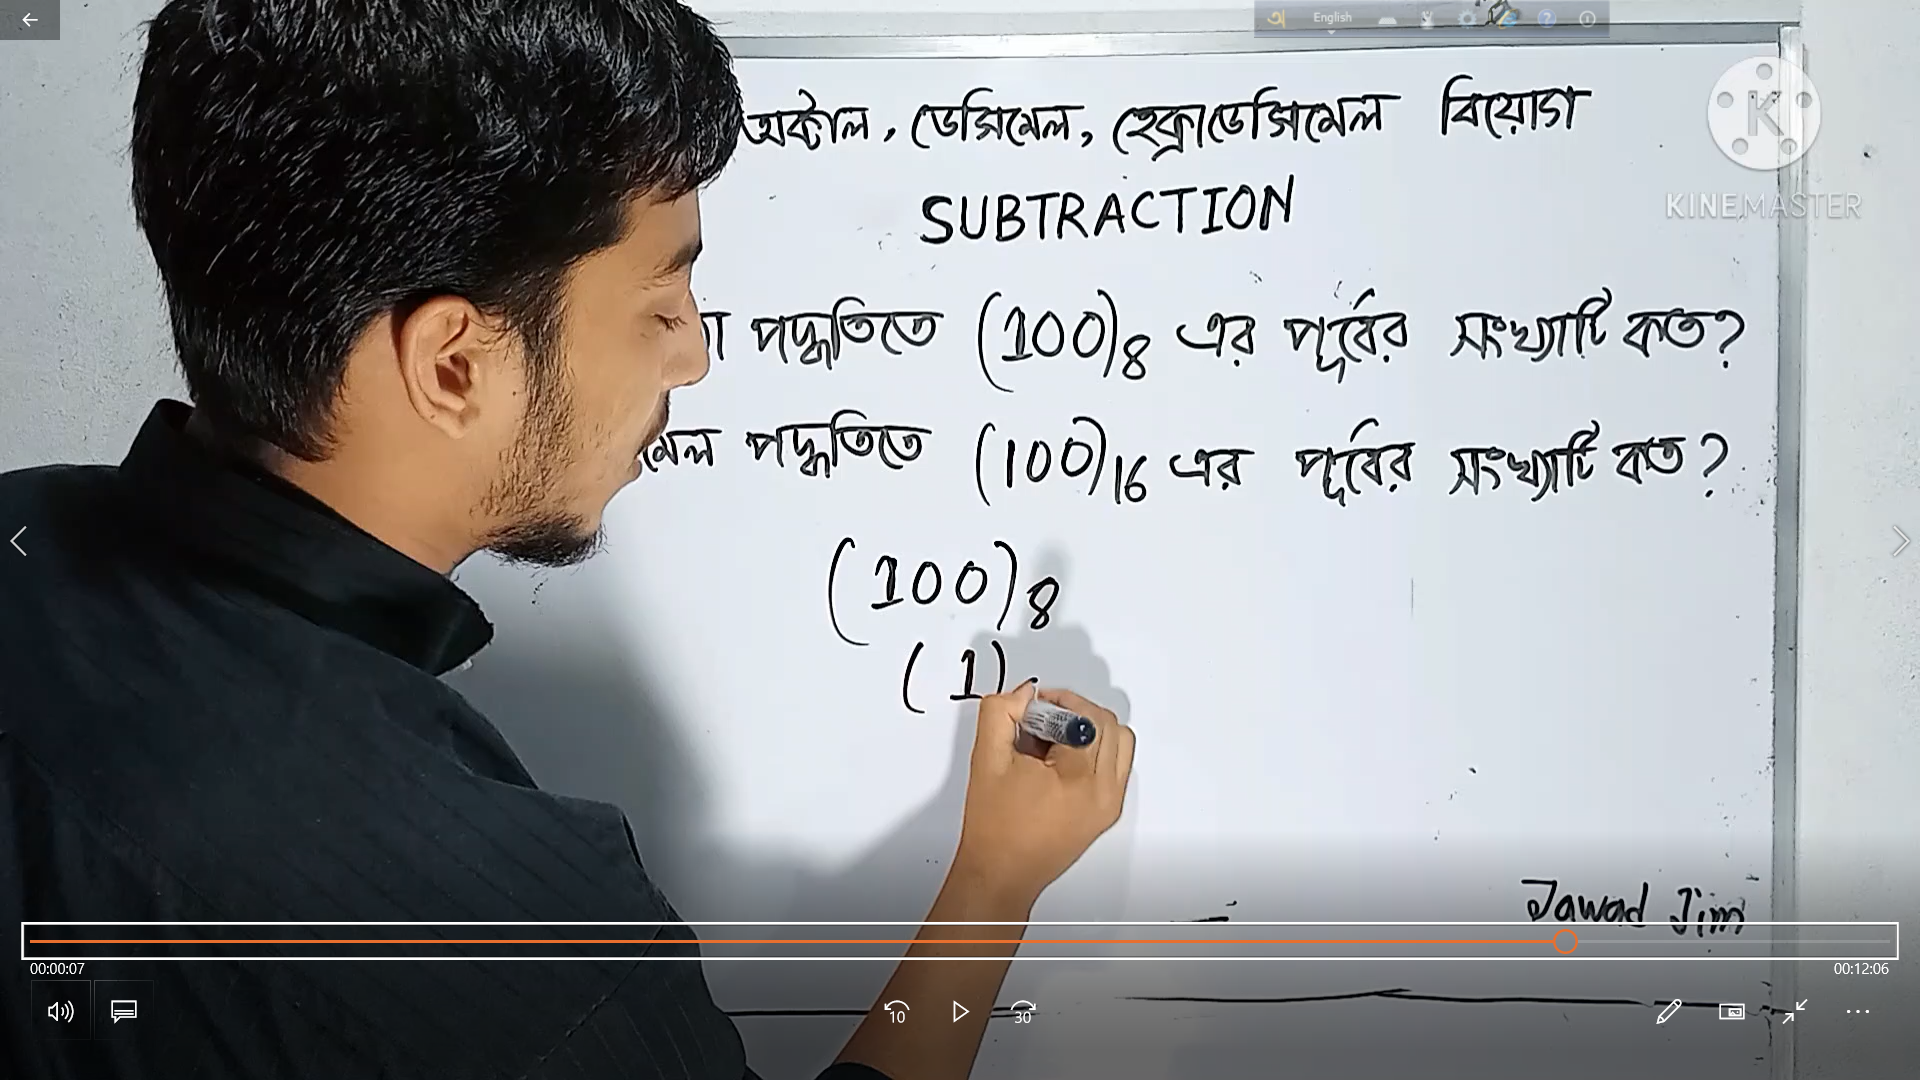 English
অক্টাল, ডেসিমেল, হেক্সাডেসিমেল বিয়োগ
K
KINEMASTER
SUBTRACTION
পদ্ধতিতে (100)8 এর পূর্বের সংখ্যাটি কত?
মেল পদ্ধতিতে (100)16 এর পূর্বের সংখ্যাটি কত?
(100)8
(1)
Jawad Jim
00:00:07
00:12:06
10
30